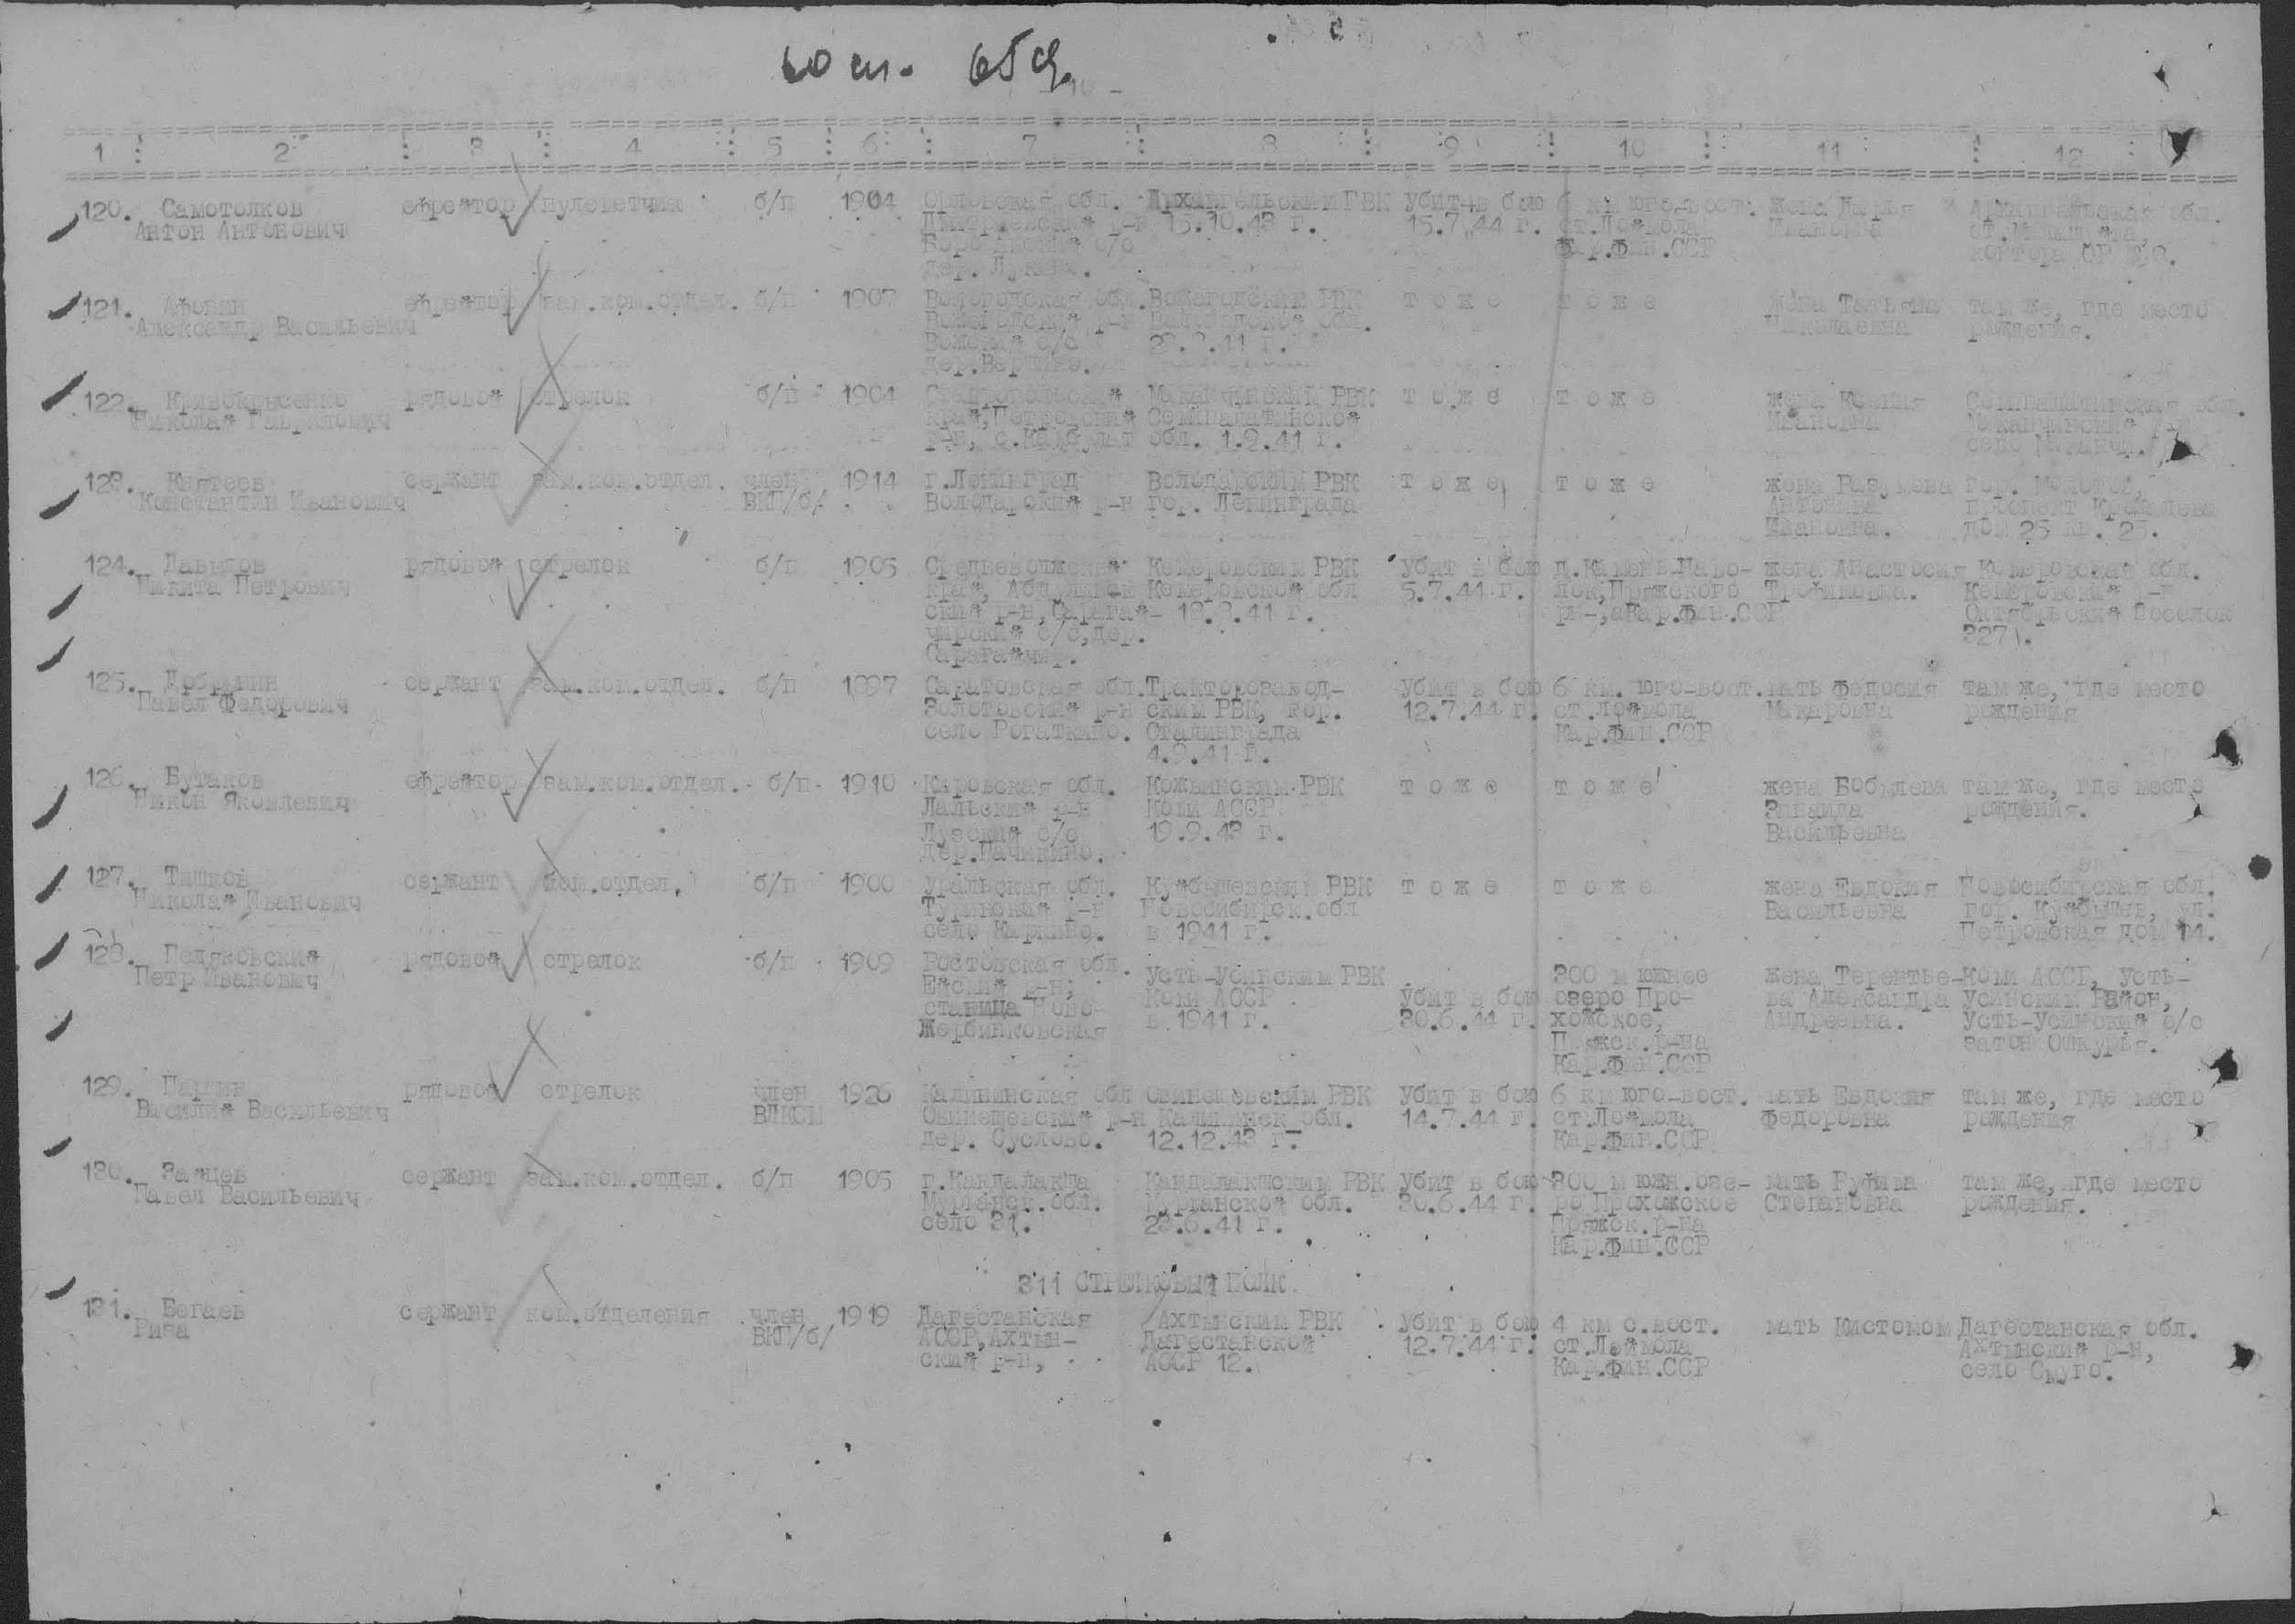 - 10 -
1 2 3 4 5 6 7 8 9 10 11 12
120. Самотолков ефрейтор пулеметчик б/п 1904 Орловская обл. Архангельским ГВК убит в бою 6 км юго-вост. жена Дарья Архангельская обл.
Антон Антонович Дмитриевский р-н 15.10.43 г. 15.7.44 г. ст.Лоймола Ивановна ст.
с/с Кар.фин.ССР контора ОР
дер.
121. Афонин ефрейтор зам.ком.отдел. б/п 1907 Вологодская обл. Вожегодским РВК т о ж е т о ж е жена Татьяна там же, где место
Александр Васильевич Вожегодский р-н Вологодской обл. Николаевна рождения.
с/с 41 г.
дер.
122. рядовой стрелок б/п 1904 Ставропольский Маканчинским РВК т о ж е т о ж е жена Ксения Семипалатинская обл.
Николай Гаврилович край, Петровский Семипалатинской Ивановна Маканчинский р-н
р-н, с. обл. 1.9.41 г. село Маканчи.
123. сержант зам.ком.отдел. член 1914 г.Ленинград Володарским РВК т о ж е т о ж е жена гор. Молотов,
Константин Иванович ВКП/б/ Володарский р-н гор. Ленинграда Антонина проспект
Ивановна. дом 25 кв. 25.
124. Давыдов рядовой стрелок б/п 1905 Средневолжский Кемеровским РВК убит в бою д.Камень-Наво- жена Анастасия Кемеровская обл.
Никита Петрович край, Кемеровской обл 5.7.44 г. лок, Пряжского Трофимовна. Кемеровский р-н
ский р-н, 41 г. Кар.фин.ССР Октябрьский поселок
с/с, дер. 327
125. Добрынин сержант зам.ком.отдел. б/п 1897 Саратовская обл. Тракторозавод- убит в бою 6 км. юго-вост. мать Федосия там же, где место
Павел Федорович Золотовский р-н ским РВК, гор. 12.7.44 г. ст.Лоймола Макаровна рождения
село Рогаткино. Сталинграда Кар.фин.ССР
4.9.41 г.
126. Бутаков ефрейтор зам.ком.отдел. б/п 1910 Кировская обл. Кожвинским РВК т о ж е т о ж е жена Бобылева там же, где место
Никон Яковлевич Лальский р-н Коми АССР Зинаида рождения.
Лузский с/с 19.9.43 г. Васильевна
дер.
127. Ташков сержант ком.отдел. б/п 1900 Уральская обл. Куйбышевский РВК т о ж е т о ж е жена Евдокия Новосибирская обл.
Николай Иванович Туринский р-н Новосибирск.обл Васильевна гор. Куйбышев, ул.
село в 1941 г. Петровская дом
128. рядовой стрелок б/п 1909 Ростовская обл. Усть-Усинским РВК 300 м южнее жена Терентье- Коми АССР, Усть-
Петр Иванович Ейский р-н, Коми АССР убит в бою озеро Про- ва Александра Усинский район,
станица Ново- в 1941 г. 30.6.44 г. хожское, Андреевна. Усть-Усинский с/с
Щербинковская Пряжск.р-на затон Ошкурья.
Кар.фин.ССР
129. Паршин рядовой стрелок член 1926 Калининская обл Овинищевским РВК убит в бою 6 км юго-вост. мать Евдокия там же, где место
Василий Васильевич ВЛКСМ Овинищевский р-н Калининск.обл. 14.7.44 г. ст.Лоймола Федоровна рождения
дер. Суслово. 12.12.43 г. Кар.фин.ССР
130. Зайцев сержант зам.ком.отдел. б/п 1905 г.Кандалакша Кандалакшским РВК убит в бою 300 м южн.озе- мать Руфина там же, где место
Павел Васильевич Мурманск.обл. Мурманской обл. 30.6.44 г. ро Прохожское Степановна рождения.
село 31. 23.6.41 г. Пряжск.р-на
Кар.фин.ССР
311 СТРЕЛКОВЫЙ ПОЛК
131. Бегаев сержант ком.отделения член 1919 Дагестанская Ахтынским РВК убит в бою 4 км с.вост. мать Кистомом Дагестанская обл.
Риза ВКП/б/ АССР, Ахтын- Дагестанской 12.7.44 г. ст.Лоймола Ахтынский р-н,
ский р-н, АССР 12. Кар.фин.ССР село Смуго.